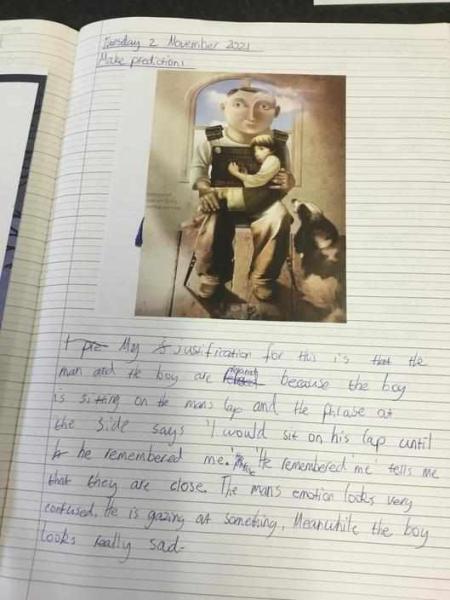 Tuesday 2 November 2021
Make predictions
I pre My J justification for this is that the
man and the boy are because the boy
is sitting on the mans lap and the phrase at
the side says 'I would sit on his lap until
h he remembered me.' 'He remembered me' tells me
that they are close. The mans emotion looks very
confused. He is gazing at something. Meanwhile the boy
looks really sad.